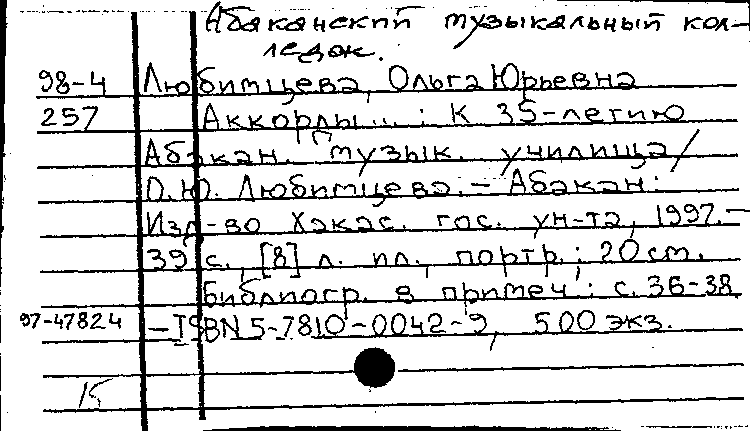 Абаканский музыкальный кол-
ледж.
98-4 Любимцева, Ольга Юрьевна
257 Аккорды... : К 35-летию
Абакан. музык. училища/
О.Ю. Любимцева. - Абакан:
Изд-во Хакас. гос. ун-та, 1997. -
39 с., [8] л. ил., портр.; 20 см.
Библиогр. в примеч.: с. 36-38
97-47824 - ISBN 5-7810-0042-9, 500 экз.
15